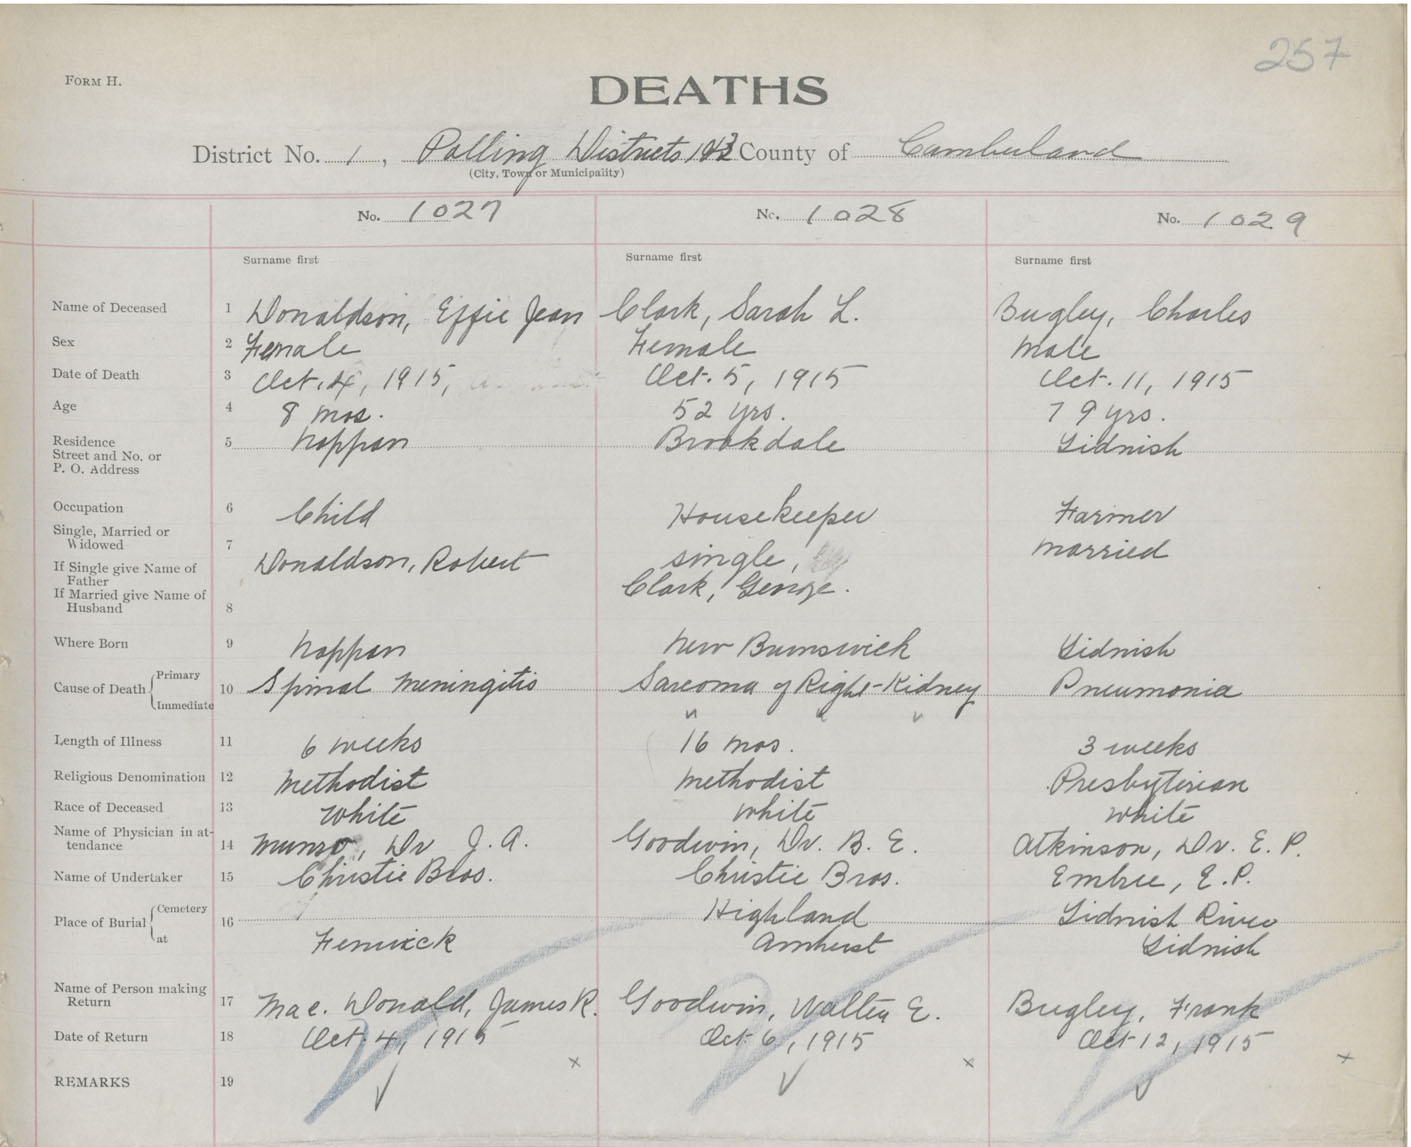 257
FORM H.
DEATHS
District No. 1, Polling Districts 1 County of Cumberland
(City, Town or Municipality)
No. 1027 No. 1028 No. 1029
Surname first Surname first Surname first
Name of Deceased 1 Donaldson, Effie Jean Clark, Sarah L. Bugley, Charles
Sex 2 Female Female Male
Date of Death 3 Oct. 4, 1915, Oct. 5, 1915 Oct. 11, 1915
Age 4 8 mos. 52 yrs. 79 yrs.
Residence 5 Nappan Brookdale Lidnish
Street and No. or
P. O. Address
Occupation 6 Child Housekeeper Farmer
Single, Married or
Widowed 7 single, Married
If Single give Name of Donaldson, Robert
Father
If Married give Name of Clark, George.
Husband 8
Where Born 9 Nappan New Brunswick Lidnish
Cause of Death Primary
10 Spinal Meningitis Sarcoma of Right-Kidney Pneumonia
Immediate " " "
Length of Illness 11 6 weeks 16 mos. 3 weeks
Religious Denomination 12 Methodist Methodist Presbyterian
Race of Deceased 13 White White White
Name of Physician in at-
tendance 14 Munro, Dr J. A. Goodwin, Dr. B. E. Atkinson, Dr. E. P.
Name of Undertaker 15 Christie Bros. Christie Bros. Embree, E. P.
Place of Burial Cemetery 16 Highland Lidnish River
at Fenwick Amherst Lidnish
Name of Person making
Return 17 Mac. Donald, James R. Goodwin, Walter E. Bugley, Frank
Date of Return 18 Oct. 4, 1915 Oct 6, 1915 Oct 12, 1915
x x x
REMARKS 19 ✓ ✓ ✓